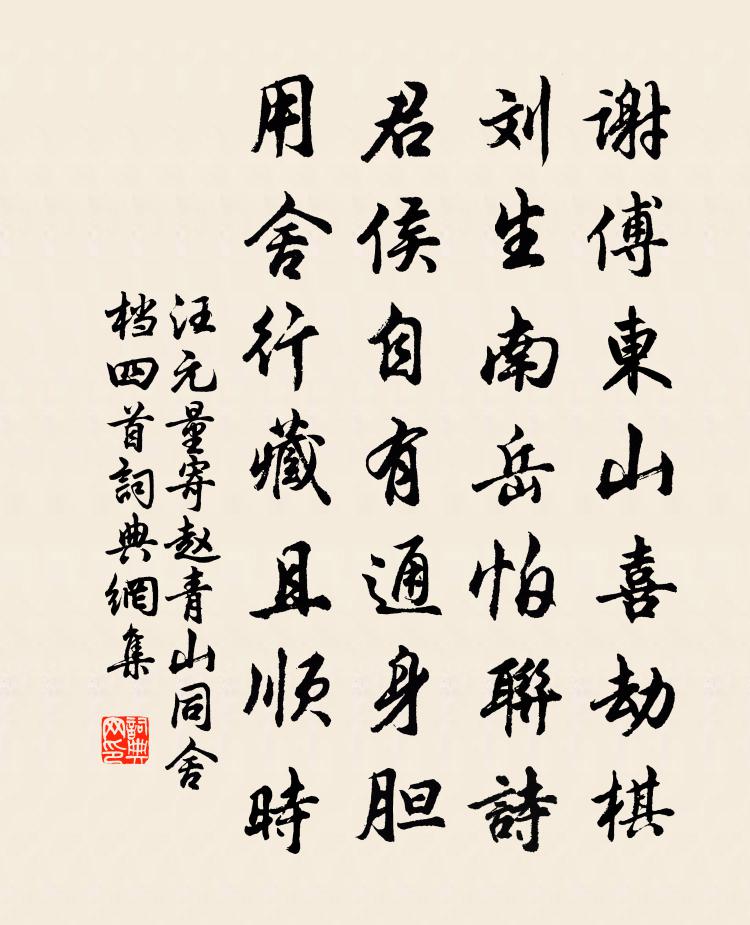 谢傅東山喜劫棋
刘生南岳怕聯詩
君侯自有通身胆
用舍行藏且順時
汪元量寄赵青山同舍
档四首詞典網集
詞典網印